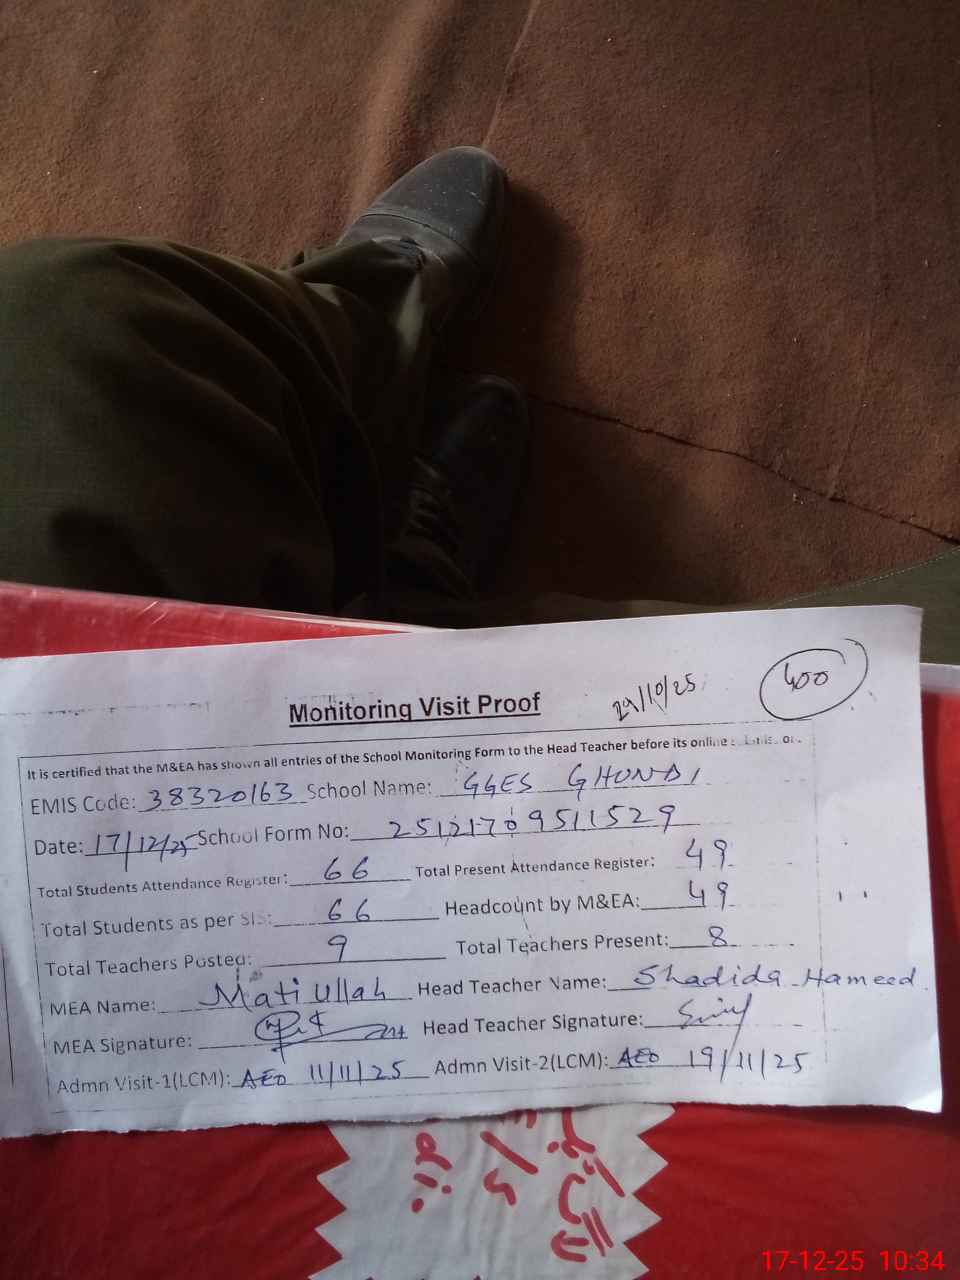 Monitoring Visit Proof
29/10/25
400
It is certified that the M&EA has shown all entries of the School Monitoring Form to the Head Teacher before its online
EMIS Code: 38320163 School Name: GGES GHUNDI
Date: 17/12/25 School Form No: 25121709511529
Total Students Attendance Register: 66 Total Present Attendance Register: 49
Total Students as per SIS: 66 Headcount by M&EA: 49
Total Teachers Posted: 9 Total Teachers Present: 8
MEA Name: Mati Ullah Head Teacher Name: Shadida Hameed
MEA Signature: Head Teacher Signature:
Admn Visit-1(LCM): AEO 11/11/25 Admn Visit-2(LCM): AEO 19/11/25
17-12-25 10:34